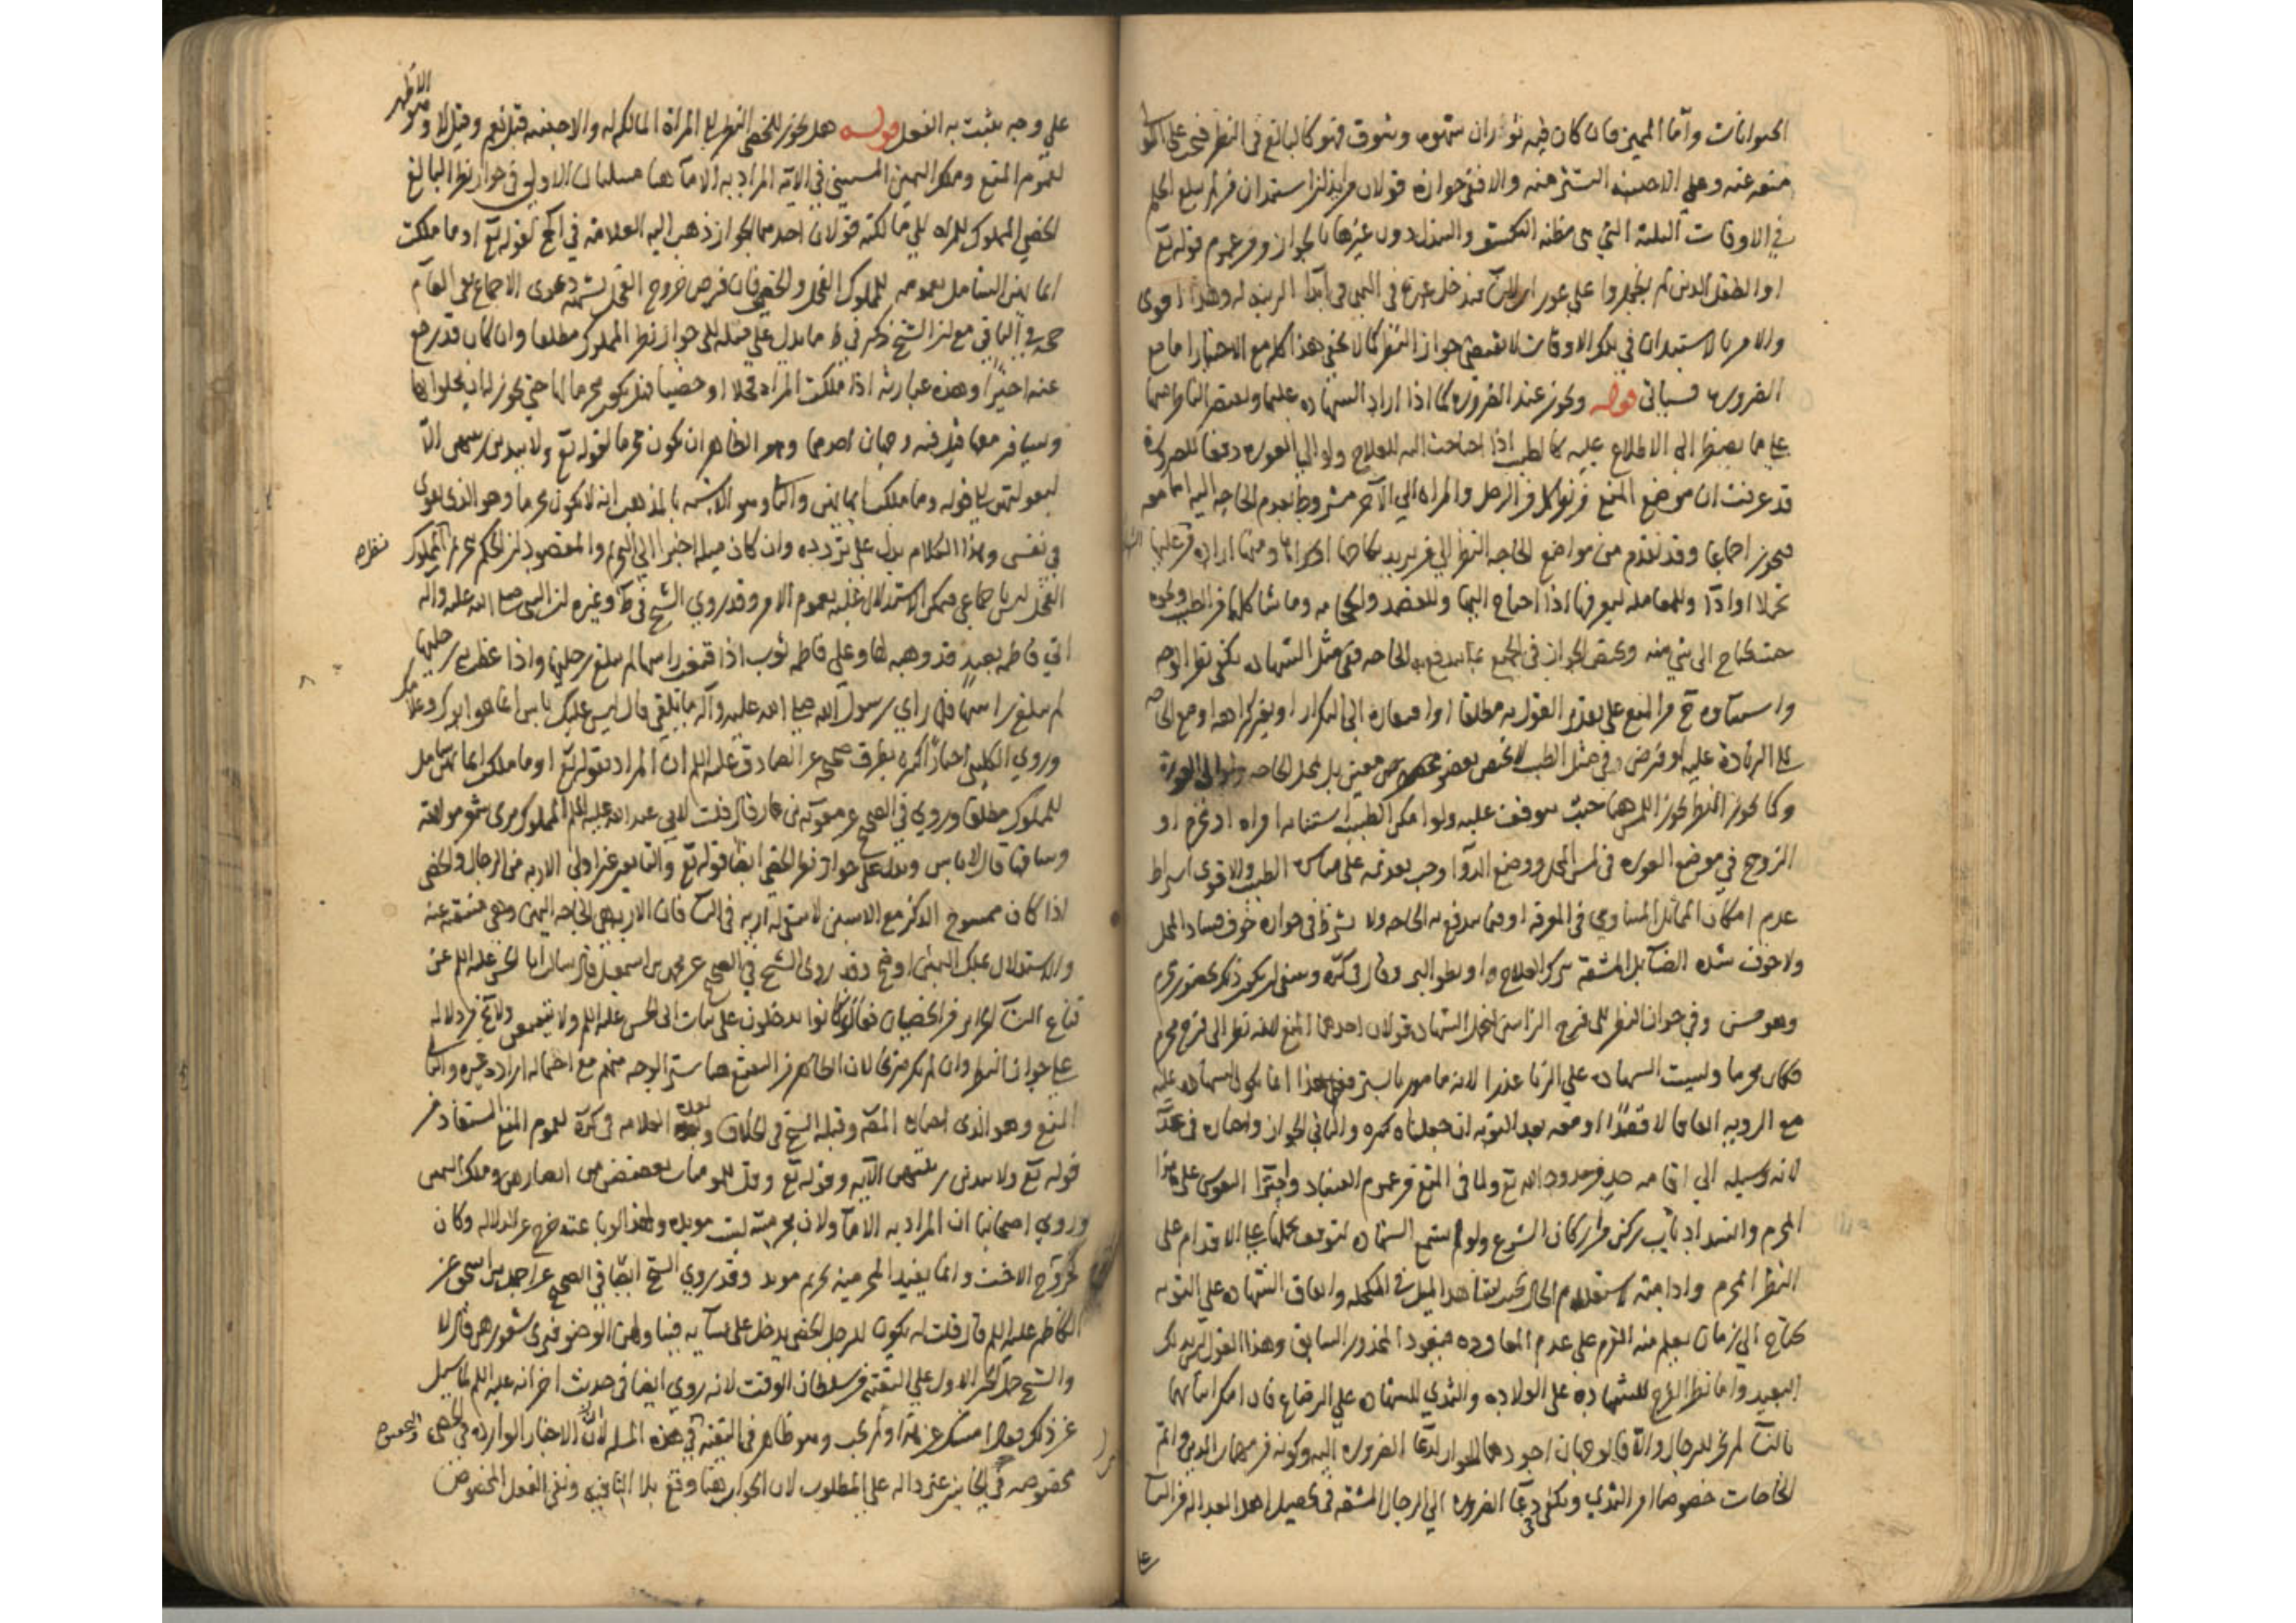 الحيوانات وأما المميز فان كان فيه ثوران شهوة وتشوق فهو كالبالغ في النظر فيجب على الولي
منعه منه وعلى الاجنبية التستر منه والا ففي جوازه قولان من ايذان استيذان من لم يبلغ الحلم
في الاوقات الثلثة التي هي مظنة التكشف والتبذل دون غيرها بالجواز ومن عموم قوله تع
او الطفل الذين لم يظهروا على عورات النساء فيدخل غيره في النهي في ابداء الزينة له وهذا اقوى
والامر بالاستيذان في تلك الاوقات لا يقتضي جواز النظر كما لا يخفى هذا كله مع الاختيار اما مع
الضرورة فسياتي قوله ويجوز عند الضرورة كما اذا اراد الشهادة عليها ويقتصر الناظر منها
على ما يضطر الى الاطلاع عليه كالطبيب اذا احتاجت اليه للعلاج ولو الى العورة دفعا للضرر
قد عرفت ان موضع المنع من نظر كل من الرجل والمراة الى الآخر مشروط بعدم الحاجة اليه اما معه
فيجوز اجماعا وقد تقدم من مواضع الحاجة النظر الى من يريد نكاحها او شراءها ومنها ارادة الشهادة عليها
تحملا او اداء وللمعاملة ليعرفها اذا احتاج اليها وللفصد والحجامة وما شاكلها من الطبيب ونحوه
حيث يحتاج الى شيء منه ويختص الجواز في الجميع بما يندفع به الحاجة ففي مثل الشهادة يكفي نظر الوجه
واستيفاؤه ح من المنع على تقدير القول به مطلقا او اختصاره الى التكرار او بغير كراهة او مع الحاجة
على الزيادة عليه لو فرض وفي مثل الطب لا يختص بعضو مخصوص معين بل بمحل الحاجة ولو الى العورة
وكما يجوز النظر يجوز اللمس هنا حيث يتوقف عليه ولو امكن الطبيب استنابة امراة او محرم او
الزوج في موضع العورة في لمس المحل ووضع الدواء وجب تقديمه على مباشرة الطبيب والاقوى اشتراط
عدم امكان المماثل المساوي في المعرفة او فيما يندفع به الحاجة ولا يشترط في جوازه خوف فساد المحل
ولا خوف شدة الضنا بل المشقة بترك العلاج او بطؤ البرء وقال في كره وينبغي ان يكون ذلك بحضور محرم
وهو حسن وفي جواز النظر الى فرج الزانيين لتحمل الشهادة قولان احدهما المنع لانه نظر الى فرج محرم
فكان محرما وليست الشهادة على الزنا عذرا لانه مامور بالستر فعلى هذا انما يكون الشهادة عليه
مع الرؤية اتفاقا لا قصدا او معه بعد التوبة ان جعلناه كبيرة والثاني الجواز واختاره في عد
لانه وسيلة الى اقامة حد من حدود الله تع ولما في المنع من عموم الفساد واجتراء النفوس على هذا
المحرم وانسداد باب ركن من اركان الشرع ولم تسمع الشهادة لتوقف تحملها على الاقدام على
النظر المحرم وادامته لاستعلام الحال بحيث يشاهد الميل في المكحلة وايقاف الشهادة على التوبة
يحتاج الى زمان يعلم منه العزم على عدم المعاودة فيعود المحذور السابق وهذا القول ليس بذلك
البعيد واما نظر الفرج للشهادة على الولادة والثدي للشهادة على الرضاع فان امكن اثباتهما
بالنساء لم يجز للرجال والا فالوجهان اجودهما الجواز لدعاء الضرورة اليه وكونه من مهمات الدين واتم
الحاجات خصوصا امر الثدي ويكفي في دعاء الضرورة الى الرجال المشقة في تحصيل اهل العدالة من النساء
على
على وجه يثبت به الفعل قوله هل يجوز للخصي النظر الى المراة المالكة له والاجنبية قيل نعم وقيل لا وهو الاظهر
لعموم المنع وملك اليمين المستثنى في الآية المراد به الاماء هنا مسئلتان الاولى في جواز نظر البالغ
الخصي المملوك للمراة الى مالكته قولان احدهما الجواز ذهب اليه العلامة في لف لقوله تع او ما ملكت
ايمانهن الشامل بعمومه للمملوك الفحل والخصي فان فرض خروج الفحل لشبهة دعوى الاجماع بقى العام
حجة في الباقي مع ان الشيخ ذكر في ط ما يدل على ميله الى جواز نظر المملوك مطلقا وان كان قد رجع
عنه اخيرا وهذه عبارته اذا ملكت المراة فحلا او خصيا فهل يكون محرما لها حتى يجوز له ان يخلو بها
ويسافر معها قيل فيه وجهان احدهما وهو الظاهر ان يكون محرما لقوله تع ولا يبدين زينتهن الا
لبعولتهن الى قوله وما ملكت ايمانهن والثاني وهو الاشبه بالمذهب انه لا يكون محرما وهو الذي يقوى
في نفسي وهذا الكلام يدل على تردده وان كان ميله اخيرا الى التحريم والمقصود ان الحكم بتحريم نظر المملوك
الفحل ليس باجماعي فيمكن الاستدلال عليه بعموم الامر وقد روى الشيخ في ط وغيره ان النبي صلى الله عليه واله
اتى فاطمة بعبد قد وهبه لها وعلى فاطمة ثوب اذا قنعت راسها لم يبلغ رجليها واذا غطت به رجليها
لم يبلغ راسها فلما راى رسول الله صلى الله عليه وآله ما تلقى قال ليس عليك باس انما هو ابوك وغلامك
وروى الكليني اخبارا كثيرة بطرق صحيحة عن الصادق عليه السلم ان المراد بقوله تع او ما ملكت ايمانهن شامل
للمملوك مطلقا وروى في الصحيح عن معوية بن عمار قال قلت لابي عبد الله عليه السلم المملوك يرى شعر مولاته
وساقها قال لا باس ويدل على جواز نظر الخصي ايضا قوله تع والتابعين غير اولي الاربة من الرجال والخصي
اذا كان ممسوح الذكر مع الانثيين لا يبقى له اربة في النساء فان الاربة هي الحاجة اليهن وهي منتفية عنه
والاستدلال بملك اليمين اوضح وقد روى الشيخ في الصحيح عن محمد بن اسمعيل قال سالت ابا الحسن عليه السلم عن
قناع النساء الحرائر من الخصيان فقال كانوا يدخلون على بنات ابي الحسن عليه السلم ولا يتقنعن ولا يخفى دلالة
على جواز النظر وان لم يكن صريحا لان الظاهر من التقنع هنا ستر الوجه منهم مع احتماله ارادة غيره والثاني
المنع وهو الذي اختاره المصنف وقبله الشيخ في الخلاف وبعده العلامة في كره لعموم المنع المستفاد من
قوله تع ولا يبدين زينتهن الآية وقوله تع وقل للمؤمنات يغضضن من ابصارهن وملك اليمين
وروى اصحابنا ان المراد به الاماء ولان محرميته ليست مؤبدة ولهذا لو باعته خرج عن الدلالة وكان
كزوج الاخت وانما يفيد المحرمية تحريم مؤبد وقد روى الشيخ ايضا في الصحيح عن احمد بن اسحق عن
الكاظم عليه السلم قال قلت له يكون للرجل الخصي يدخل على نسائه فيناولهن الوضوء فيرى شعورهن قال لا
والشيخ حمل الخبر الاول على التقية من سلطان الوقت لانه روى ايضا في حديث اخر انه عليه السلم لما سئل
عن ذلك فقال امسك عن هذا ولم يجب وهو ظاهر في التقية في هذه المسئلة لان الاخبار الواردة في الخصي
مخصوصة في الجانبين غير دالة على المطلوب لان الجواز هنا وقع بلا النافية ونفي الفعل المخصوص